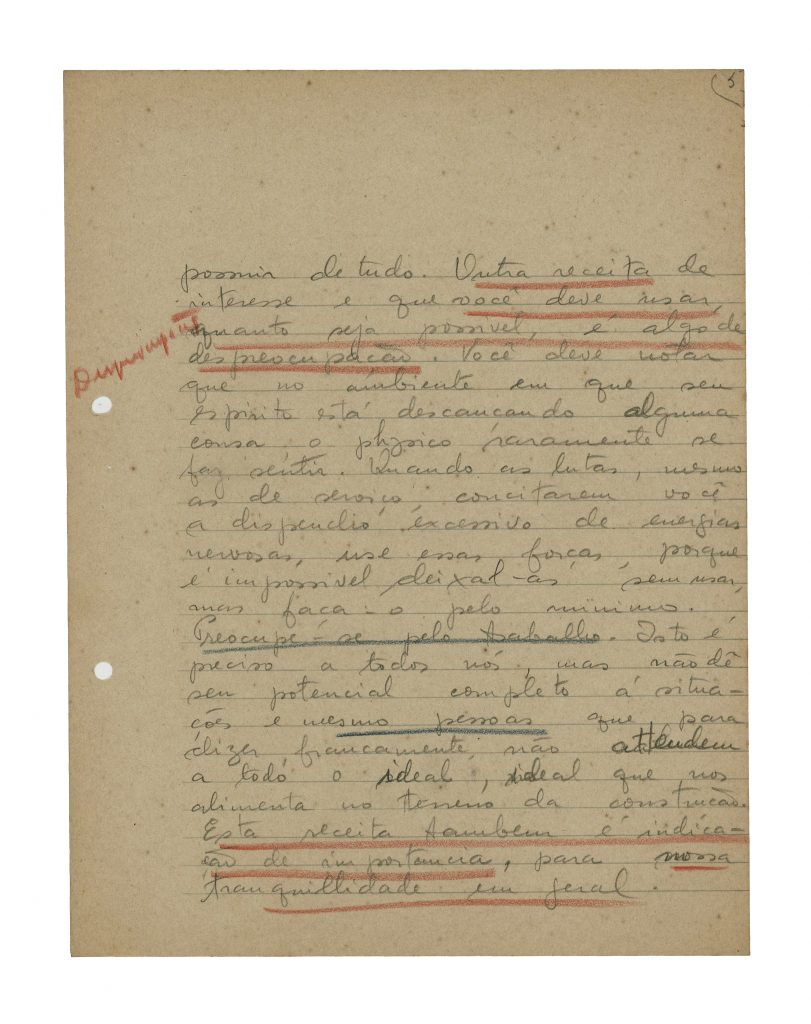 5
possuir de tudo. Outra receita de
interesse e que você deve usar,
quanto seja possivel, é algo de
despreocupação. Você deve notar
que no ambiente em que seu
espirito está descançando alguma
cousa o physico raramente se
faz sentir. Quando as lutas, mesmo
as de serviço, concitarem você
a dispendio excessivo de energias
nervosas, use essas forças, porque
é impossivel deixal-as sem usar,
mas faça-o pelo minimo.
Preocupe-se pelo trabalho. Isto é
preciso a todos nós, mas não dê
seu potencial completo á situa-
ções e mesmo pessoas que para
dizer francamente, não attendem
a todo o ideal, ideal que nos
alimenta no terreno da construcção.
Esta receita tambem é indica-
ção de importancia, para nossa
tranquillidade em geral.